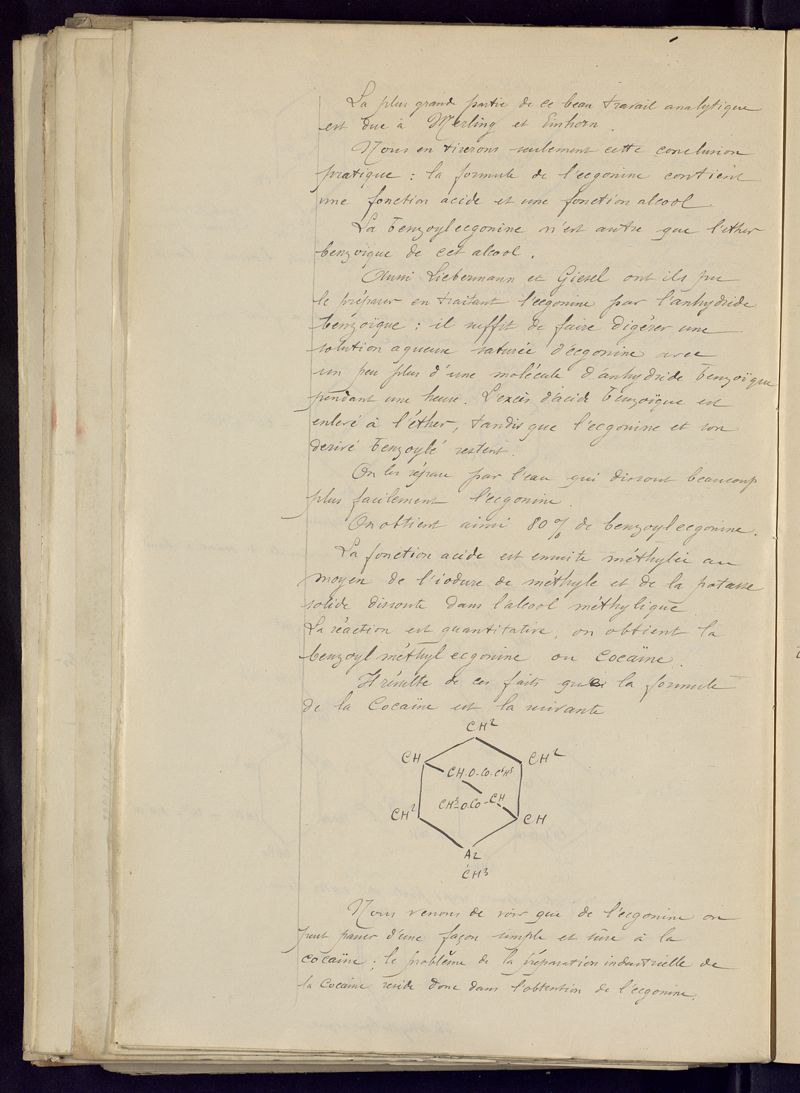 La plus grand partie de ce beau travail analytique
est due à Merling et Einhorn.
Nous en tirerons seulement cette conclusion
pratique : la formule de l'ecgonine contient
une fonction acide et une fonction alcool.
La benzoylecgonine n'est autre que l'ether
benzoïque de cet alcool.
Aussi Liebermann et Giesel ont ils pu
le préparer en traitant l'ecgonine par l'anhydride
benzoïque : il suffit de faire digérer une
solution aqueuse saturée d'ecgonine avec
un peu plus d'une molécule d'anhydride benzoïque
pendant une heure. L'excès d'acide benzoïque est
enlevé à l'éther, tandis que l'ecgonine et son
derivé benzoylé restent.
On les sépare par l'eau qui dissout beaucoup
plus facilement l'ecgonine.
On obtient ainsi 80% de benzoylecgonine.
La fonction acide est ensuite méthylée au
moyen de l'iodure de méthyle et de la potasse
solide dissoute dans l'alcool méthylique
La réaction est quantitative, on obtient la
benzoyl méthyl ecgonine ou Cocaïne.
Il résulte de ces faits que la formule
de la Cocaïne est la suivante
CH²
CH
CH²
CH.O-Co-C⁶H⁵
CH³-O.Co-CH
CH²
CH
Az
CH³
Nous venons de voir que de l'ecgonine on
peut passer d'une façon simple et sûre à la
cocaïne ; le problème de la préparation industrielle de
la Cocaïne reside donc dans l'obtention de l'ecgonine.